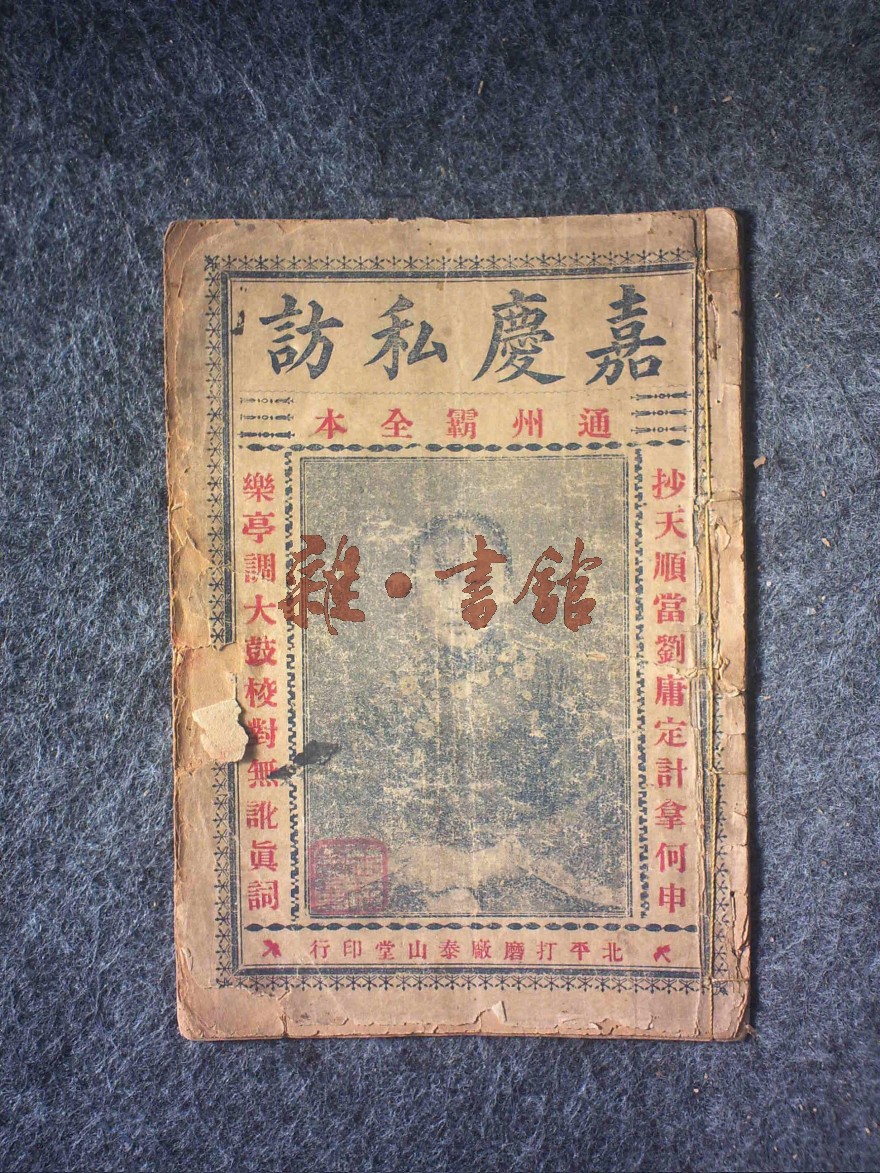 嘉慶私訪
通州霸全本
抄天順當劉庸定計拿何申
樂亭調大鼓校對無訛眞詞
雜·書館
北平打磨廠泰山堂印行